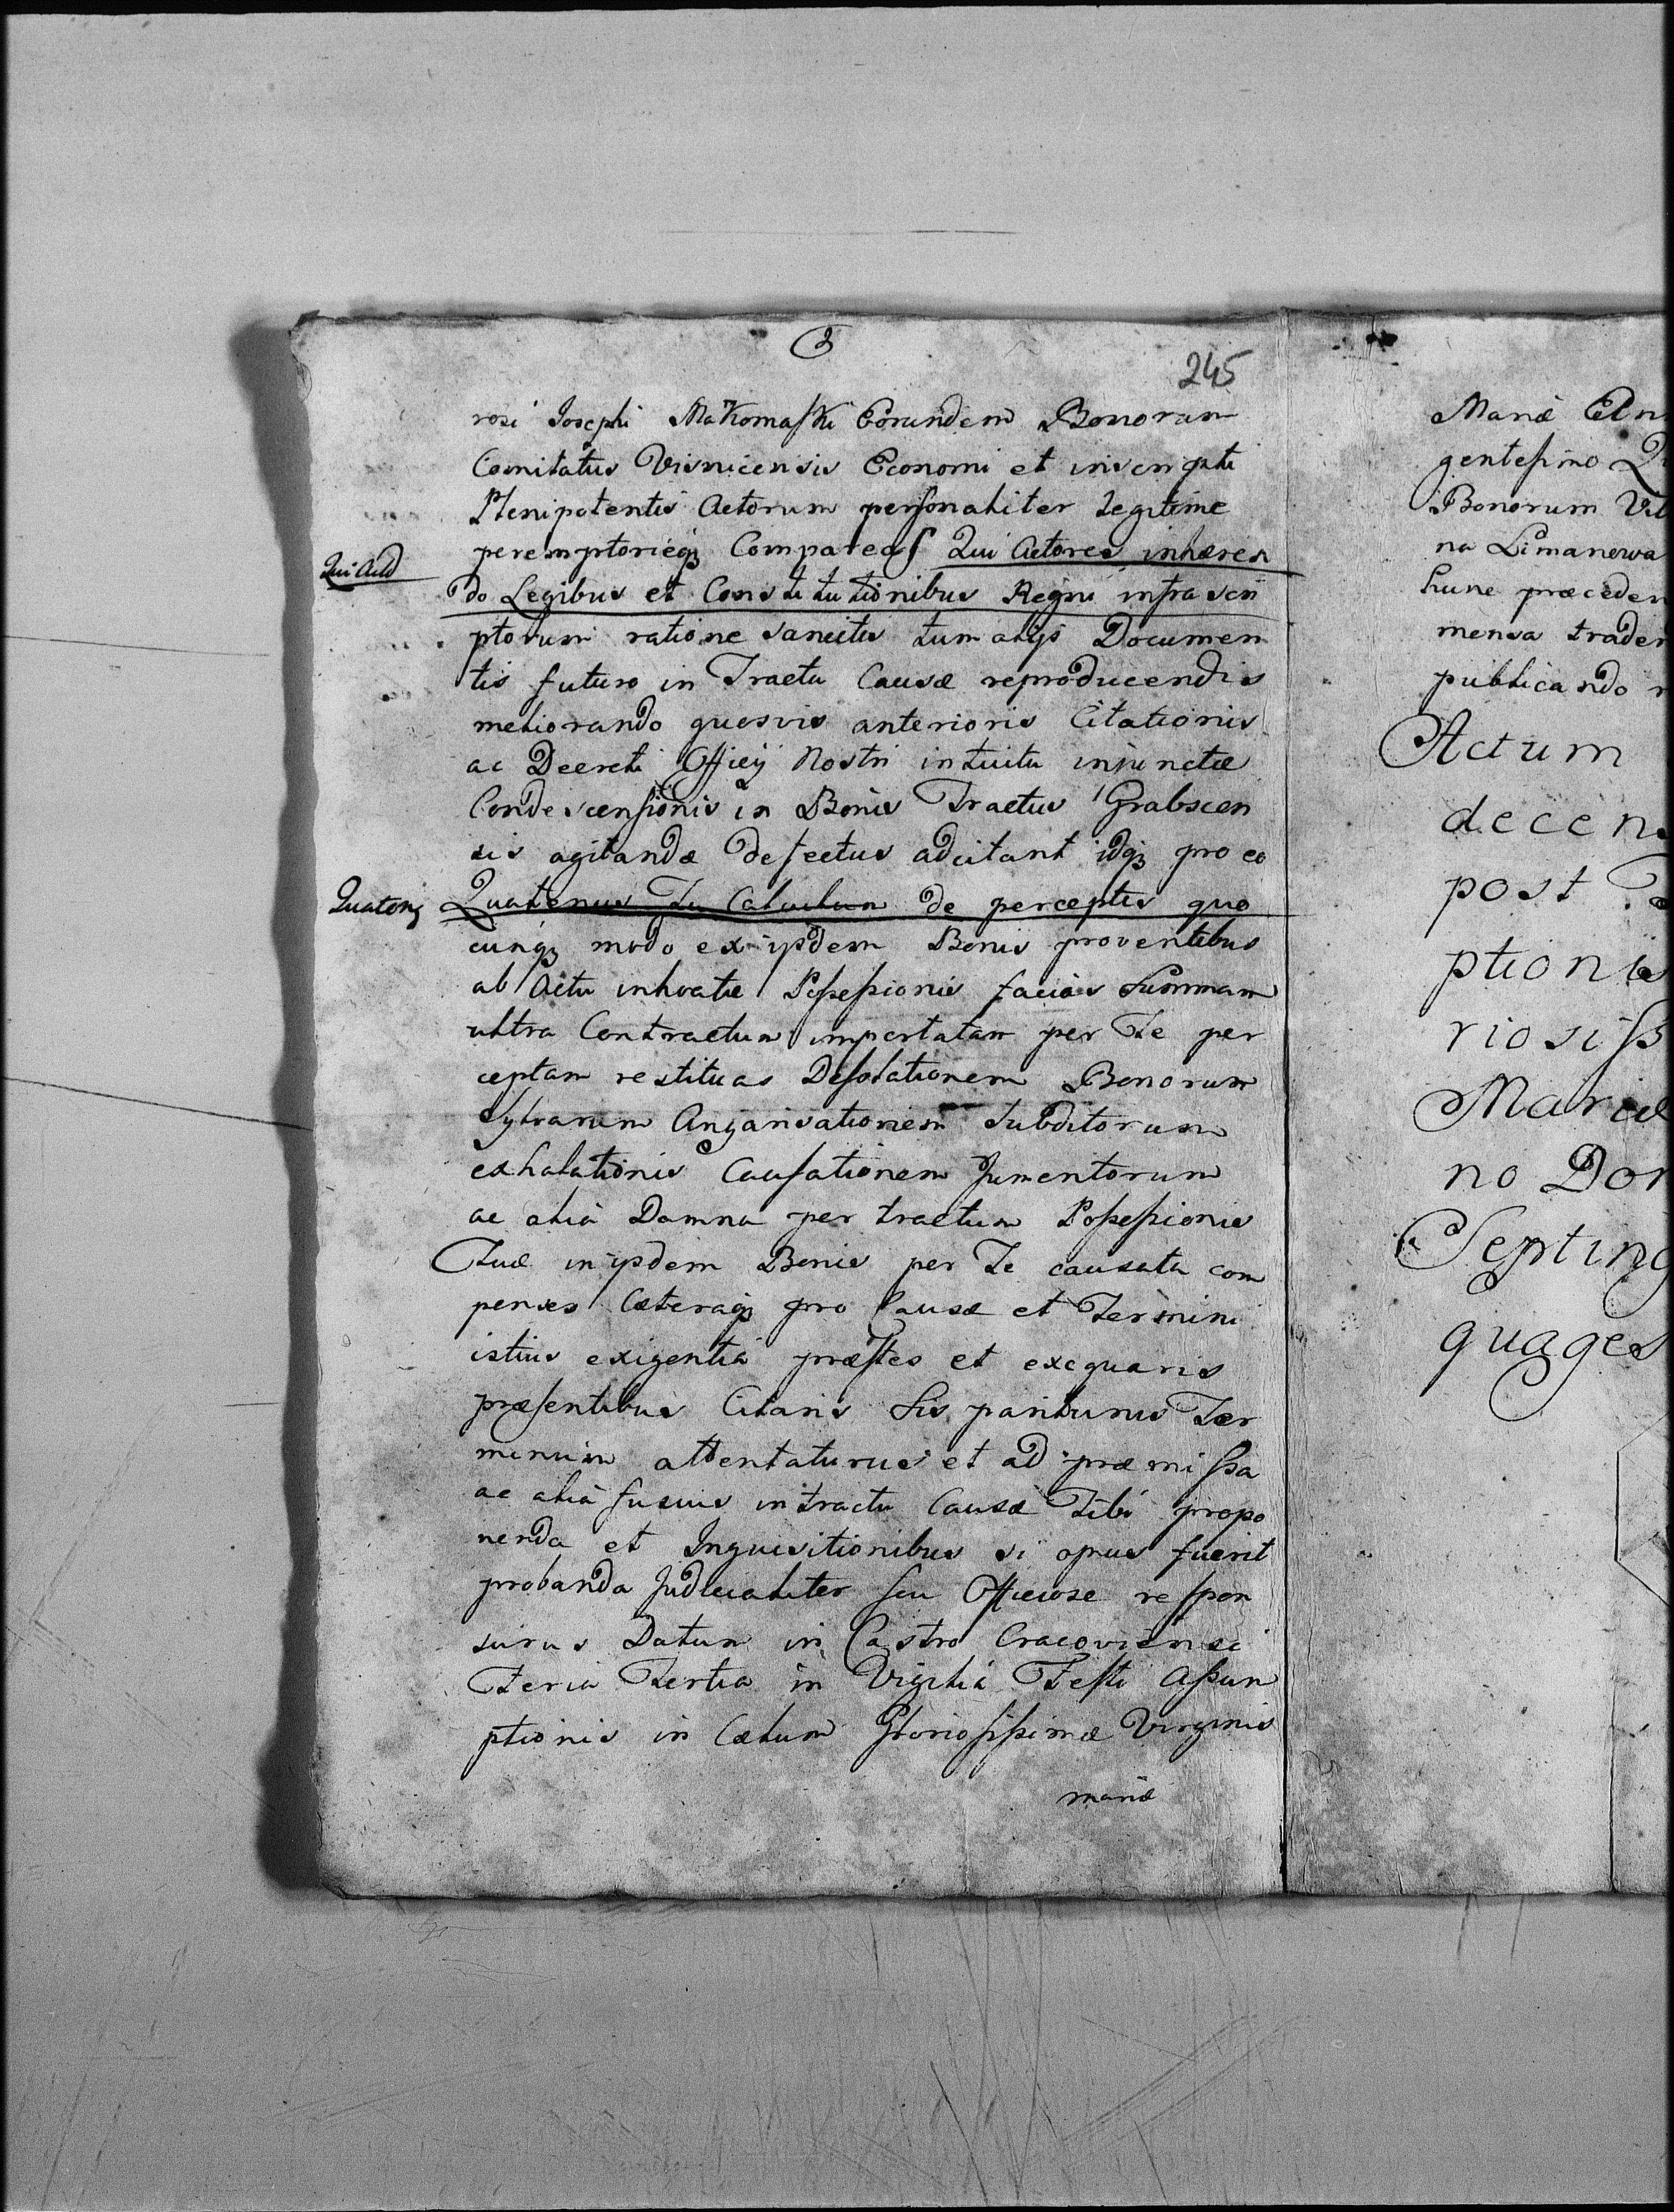 245
rosi Josephi Makomaski Eorundem Bonorum
Comitatus Visnicensis Economi et inscripti
Plenipotentis Actorum personaliter legitime
peremptorieq3 Compareas Qui Actores inhæren
Qui Actd
do Legibus et Constitutionibus Regni infrascri
ptorum ratione sancitis tum alijs Documen
tis futuro in Tractu Causæ reproducendis
meliorando quosvis anterioris Citationis
ac Decreti Officij Nostri intuitu injunctæ
Condescensionis in Bonis Tractus Grabscen
sis agitandæ defectus adcitant idq3 pro eo
Quateng
Quatenus Tu Calculum de perceptis quo
cunq3 modo ex ijsdem Bonis proventibus
ab Actu inhoatæ Possessionis facias Summam
ultra Contractum importatam per Te per
ceptam restituas Desolationem Bonorum
Sylvarum Angarisationem Subditorum
exhalationis Causationem Jumentorum
ac alia Damna per tractum Possessionis
Tuæ in ijsdem Bonis per Te causata com
penses Cæteraq3 pro Causæ et Termini
istius exigentia præstes et exequaris
præsentibus Citaris Sis pariturus Ter
minum attentaturus et ad præmissa
ac alia fusius in tractu Causæ Tibi propo
nenda et Inquisitionibus si opus fuerit
probanda Judicialiter seu Officiose respon
surus Datum in Castro Cracoviensi
Feria Tertia in Vigilia Festi Assum
ptionis in Cælum Gloriosissimæ Virginis
mariæ
Mariæ An
gentesimo Qu
Bonorum Vil
na Limanowa
hunc præceden
mensa trader
publicando
Actum
decen
post
ptionis
riosiss
Mariæ
no Dom
Septing
quages